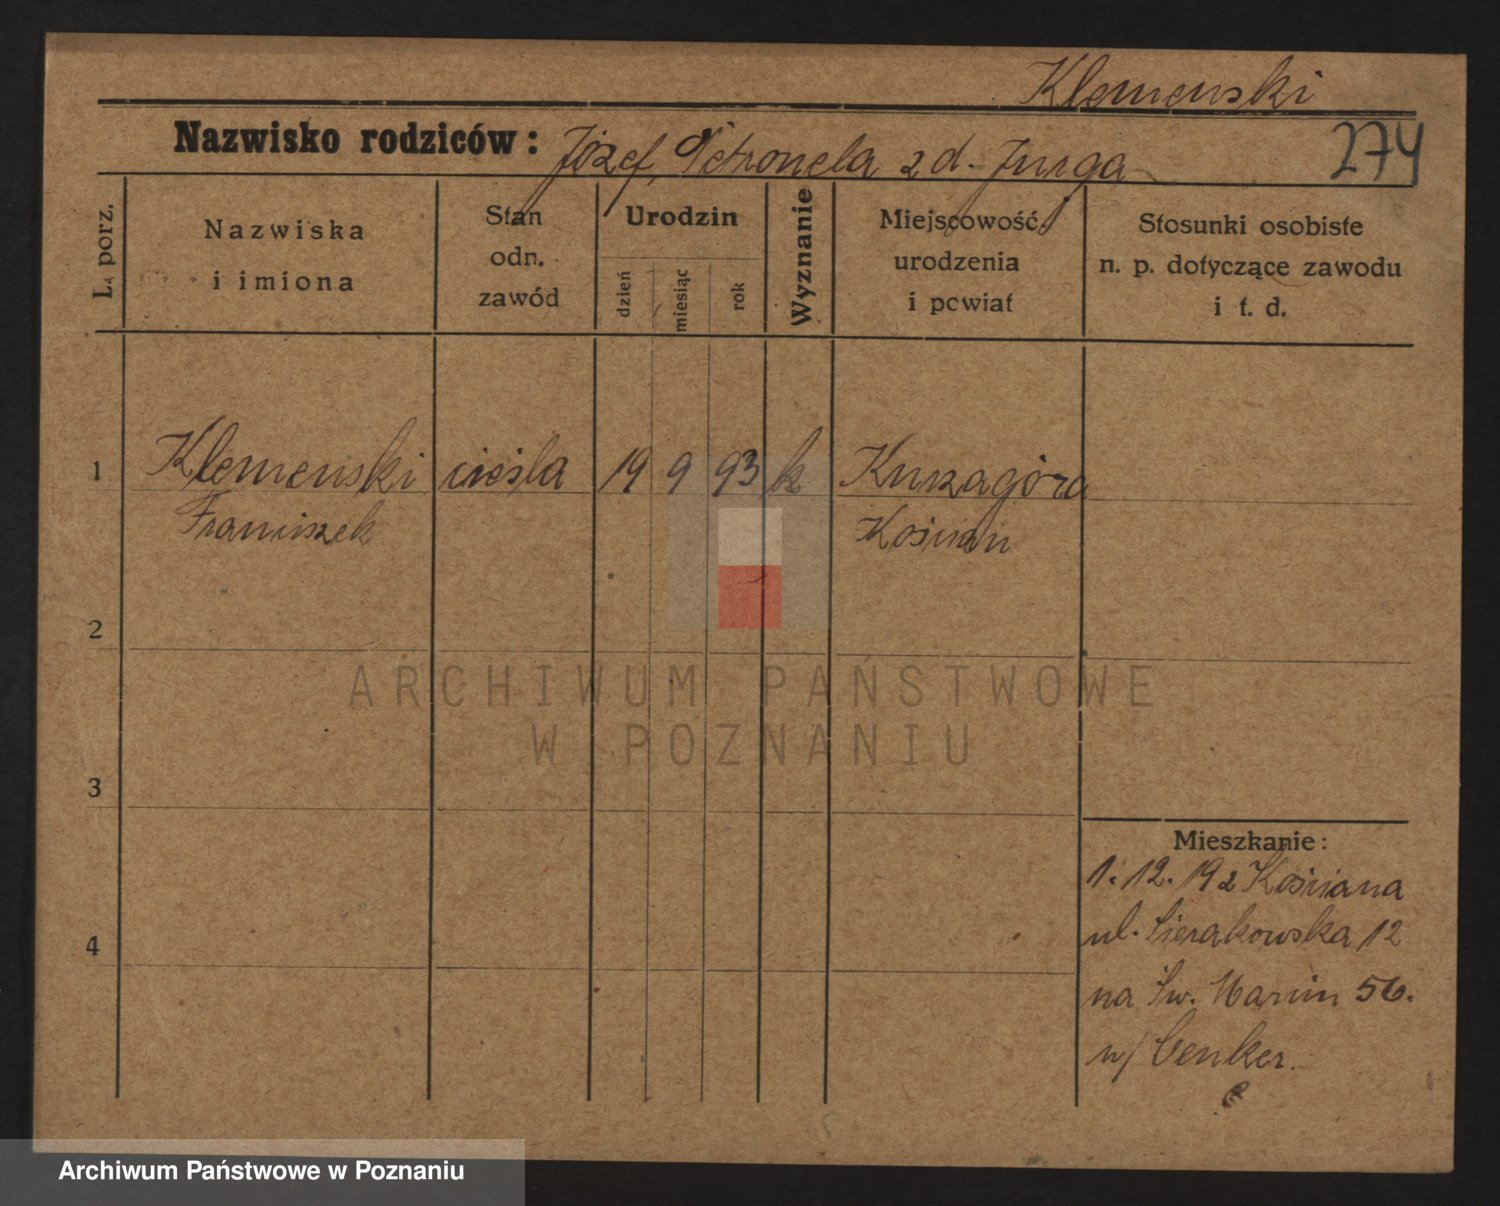 Klemenski
Nazwisko rodziców: Józef, Petronela z d. Jurga
274
L. porz.
Nazwiska
i imiona
Stan
odn.
zawód
Urodzin
dzień
miesiąc
rok
Wyznanie
Miejscowość
urodzenia
i powiat
Stosunki osobiste
n. p. dotyczące zawodu
i t. d.
1 Klemenski cieśla 19 9 93 k Kurzagóra
Franciszek Kościan
2
3
4
Mieszkanie:
1. 12. 192 Kościana
ul. Sierakowska 12
na Św. Marcin 56.
u/ Cenker.
ARCHIWUM PAŃSTWOWE
W POZNANIU
Archiwum Państwowe w Poznaniu